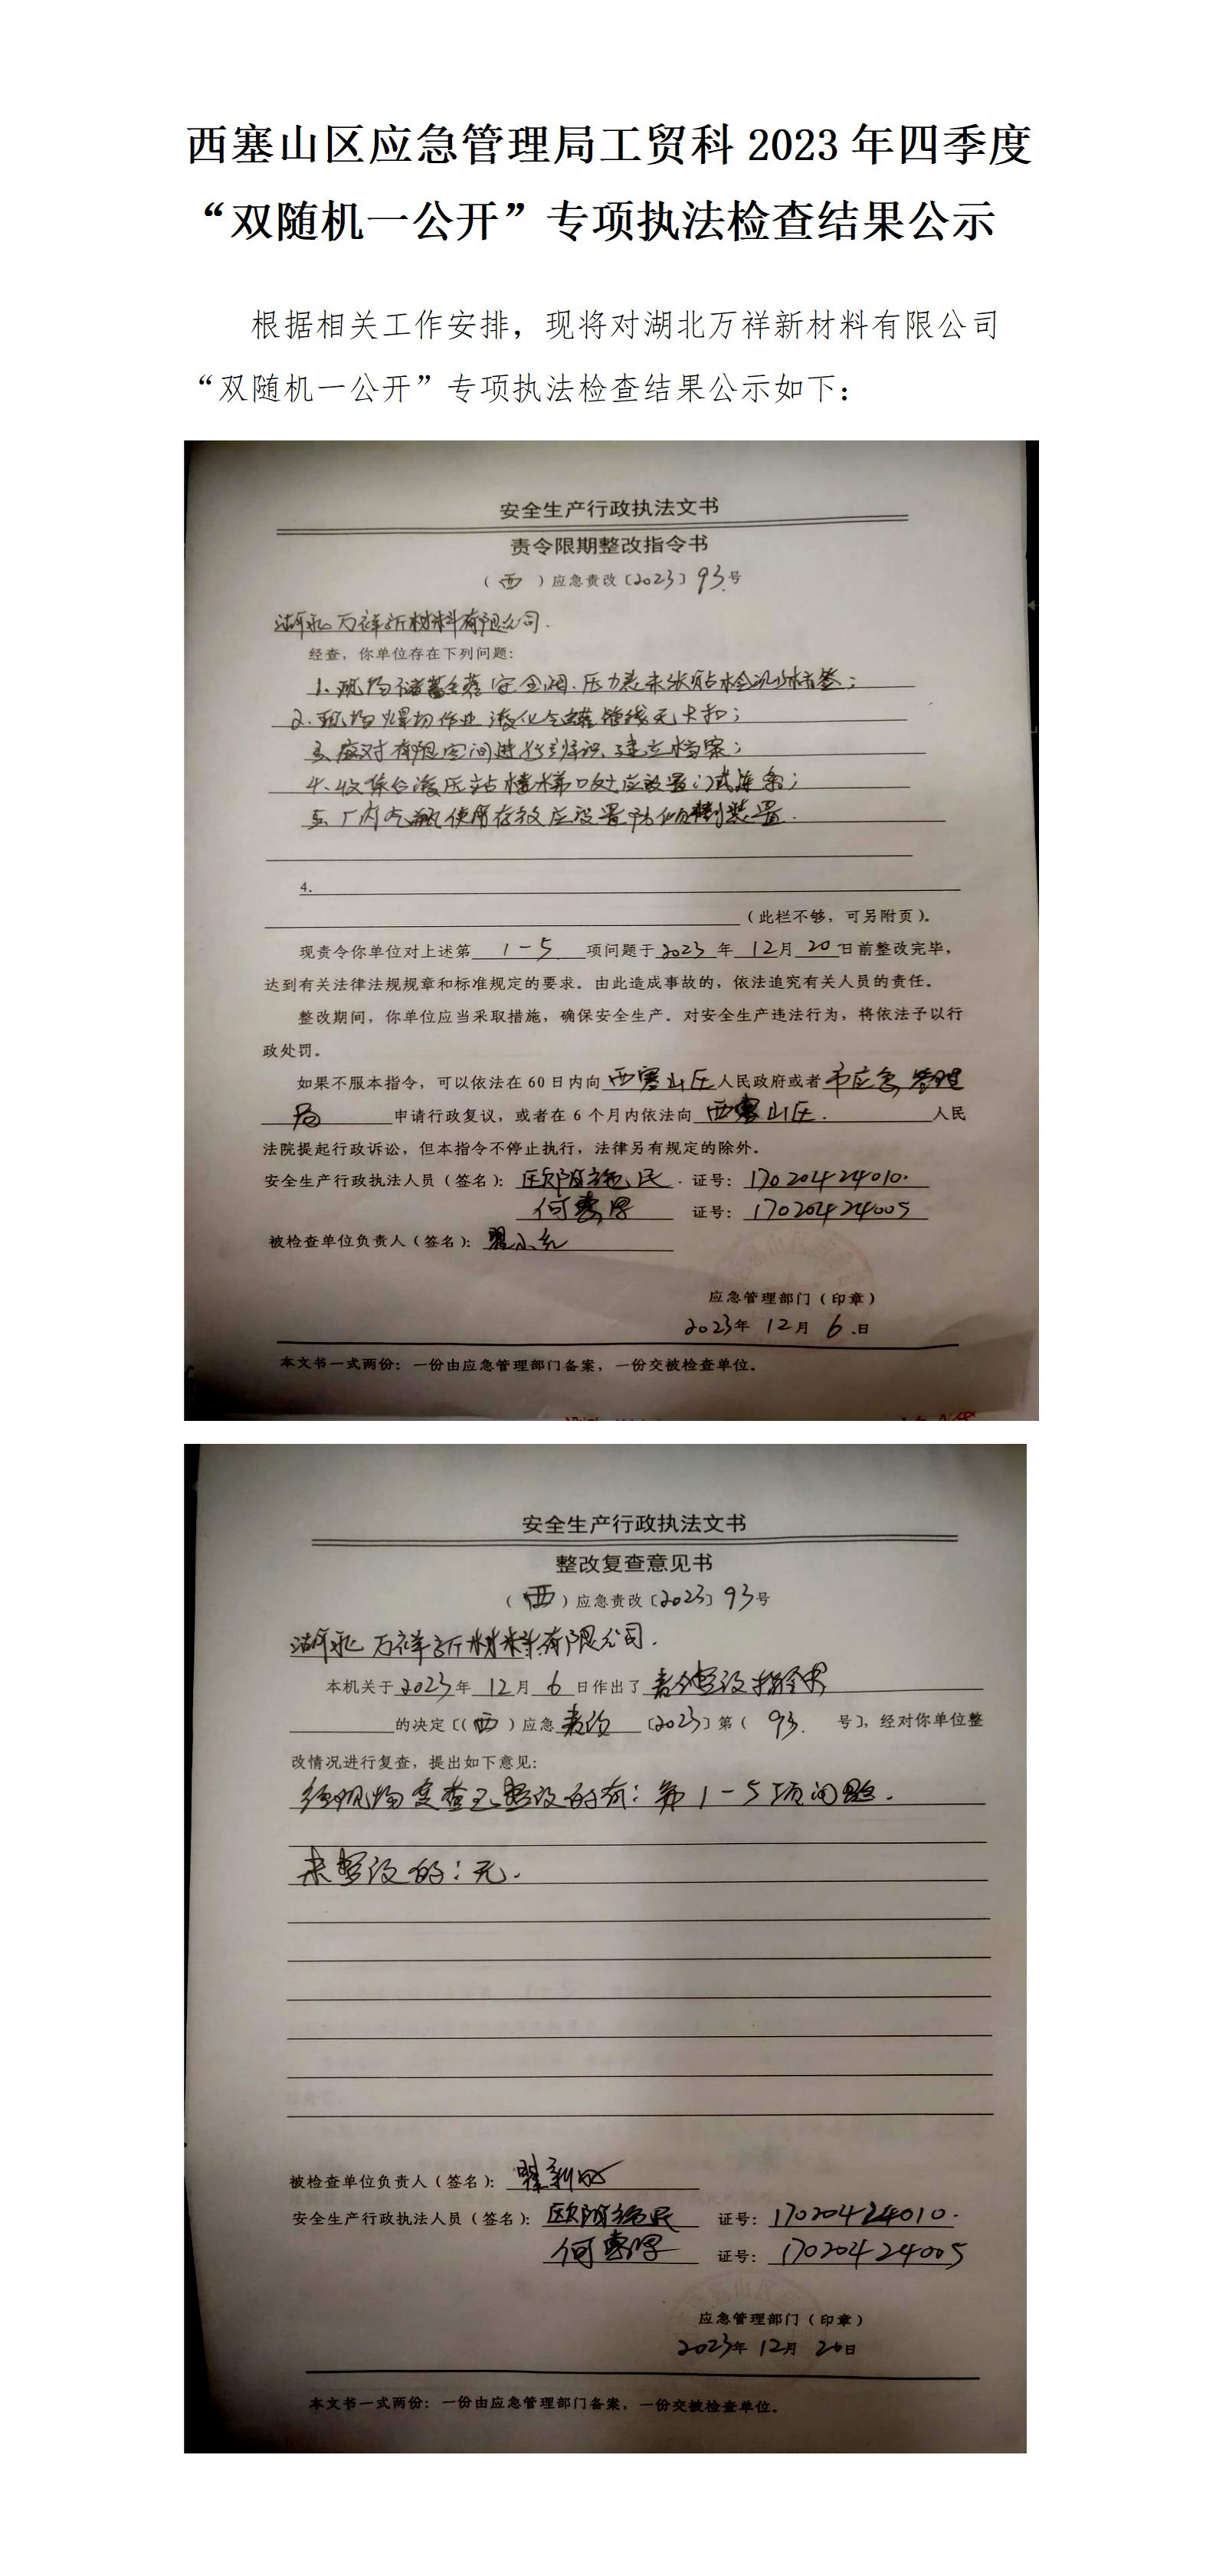 西塞山区应急管理局工贸科 2023 年四季度
“双随机一公开”专项执法检查结果公示
根据相关工作安排，现将对湖北万祥新材料有限公司
“双随机一公开”专项执法检查结果公示如下：
安全生产行政执法文书
责令限期整改指令书
（西）应急责改〔2023〕93号
湖北万祥新材料有限公司.
经查，你单位存在下列问题：
1.现场储蓄罐安全阀.压力表未张贴检测标签；
2.现场焊切作业液化气罐管线无卡扣；
3.应对有限空间进行辨识、建立档案；
4.收集台液压站楼梯口处应设置门或连条；
5.厂内气瓶使用存放应设置防倾倒装置.
4.
（此栏不够，可另附页）。
现责令你单位对上述第 1-5 项问题于 2023 年 12 月 20 日前整改完毕，
达到有关法律法规规章和标准规定的要求。由此造成事故的，依法追究有关人员的责任。
整改期间，你单位应当采取措施，确保安全生产。对安全生产违法行为，将依法予以行
政处罚。
如果不服本指令，可以依法在 60 日内向 西塞山区 人民政府或者 市应急管理
局 申请行政复议，或者在 6 个月内依法向 西塞山区. 人民
法院提起行政诉讼，但本指令不停止执行，法律另有规定的除外。
安全生产行政执法人员（签名）：欧阳 民. 证号：17020424010.
何 证号：17020424005
被检查单位负责人（签名）：翟小
应急管理部门（印章）
2023年 12月 6.日
本文书一式两份：一份由应急管理部门备案，一份交被检查单位。
安全生产行政执法文书
整改复查意见书
（西）应急责改〔2023〕93号
湖北万祥新材料有限公司.
本机关于 2023 年 12 月 6 日作出了 责令整改指令书
的决定〔（西）应急 责改 〔2023〕第（ 93. 号〕，经对你单位整
改情况进行复查，提出如下意见：
经现场复查已整改的有：第1-5项问题.
未整改的：无.
被检查单位负责人（签名）：翟
安全生产行政执法人员（签名）：欧阳 民 证号：17020424010.
何 证号：17020424005
应急管理部门（印章）
2023年 12月 20日
本文书一式两份：一份由应急管理部门备案，一份交被检查单位。